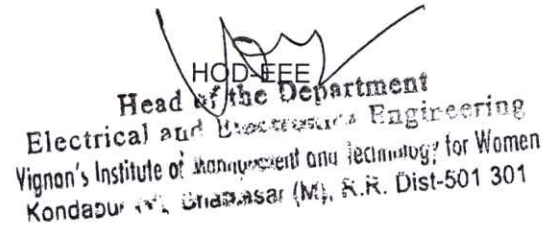 HOD-EEE
Head of the Department
Electrical and Electronics Engineering
Vignan's Institute of Management and Technology for Women
Kondapur (V), Ghatkesar (M), R.R. Dist-501 301